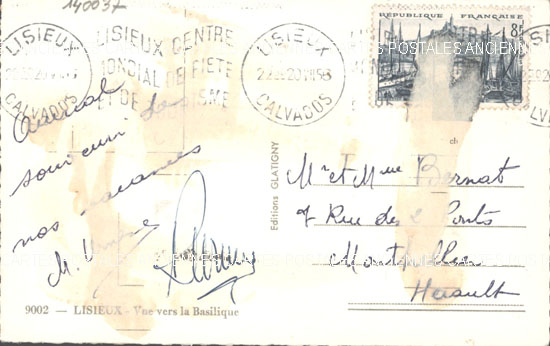 140037
LISIEUX
CALVADOS
LISIEUX CENTRE
MONDIAL DE PIETE
ET DE TOURISME
LISIEUX
CALVADOS
RÉPUBLIQUE FRANÇAISE
8F
POSTALES ANCIENNES
Amical
souvenir de
nos vacances
M.
Mr et Mme Bernat
7 Rue des 2 Ponts
Montpellier
Herault
Editions GLATIGNY
9002 — LISIEUX - Vue vers la Basilique